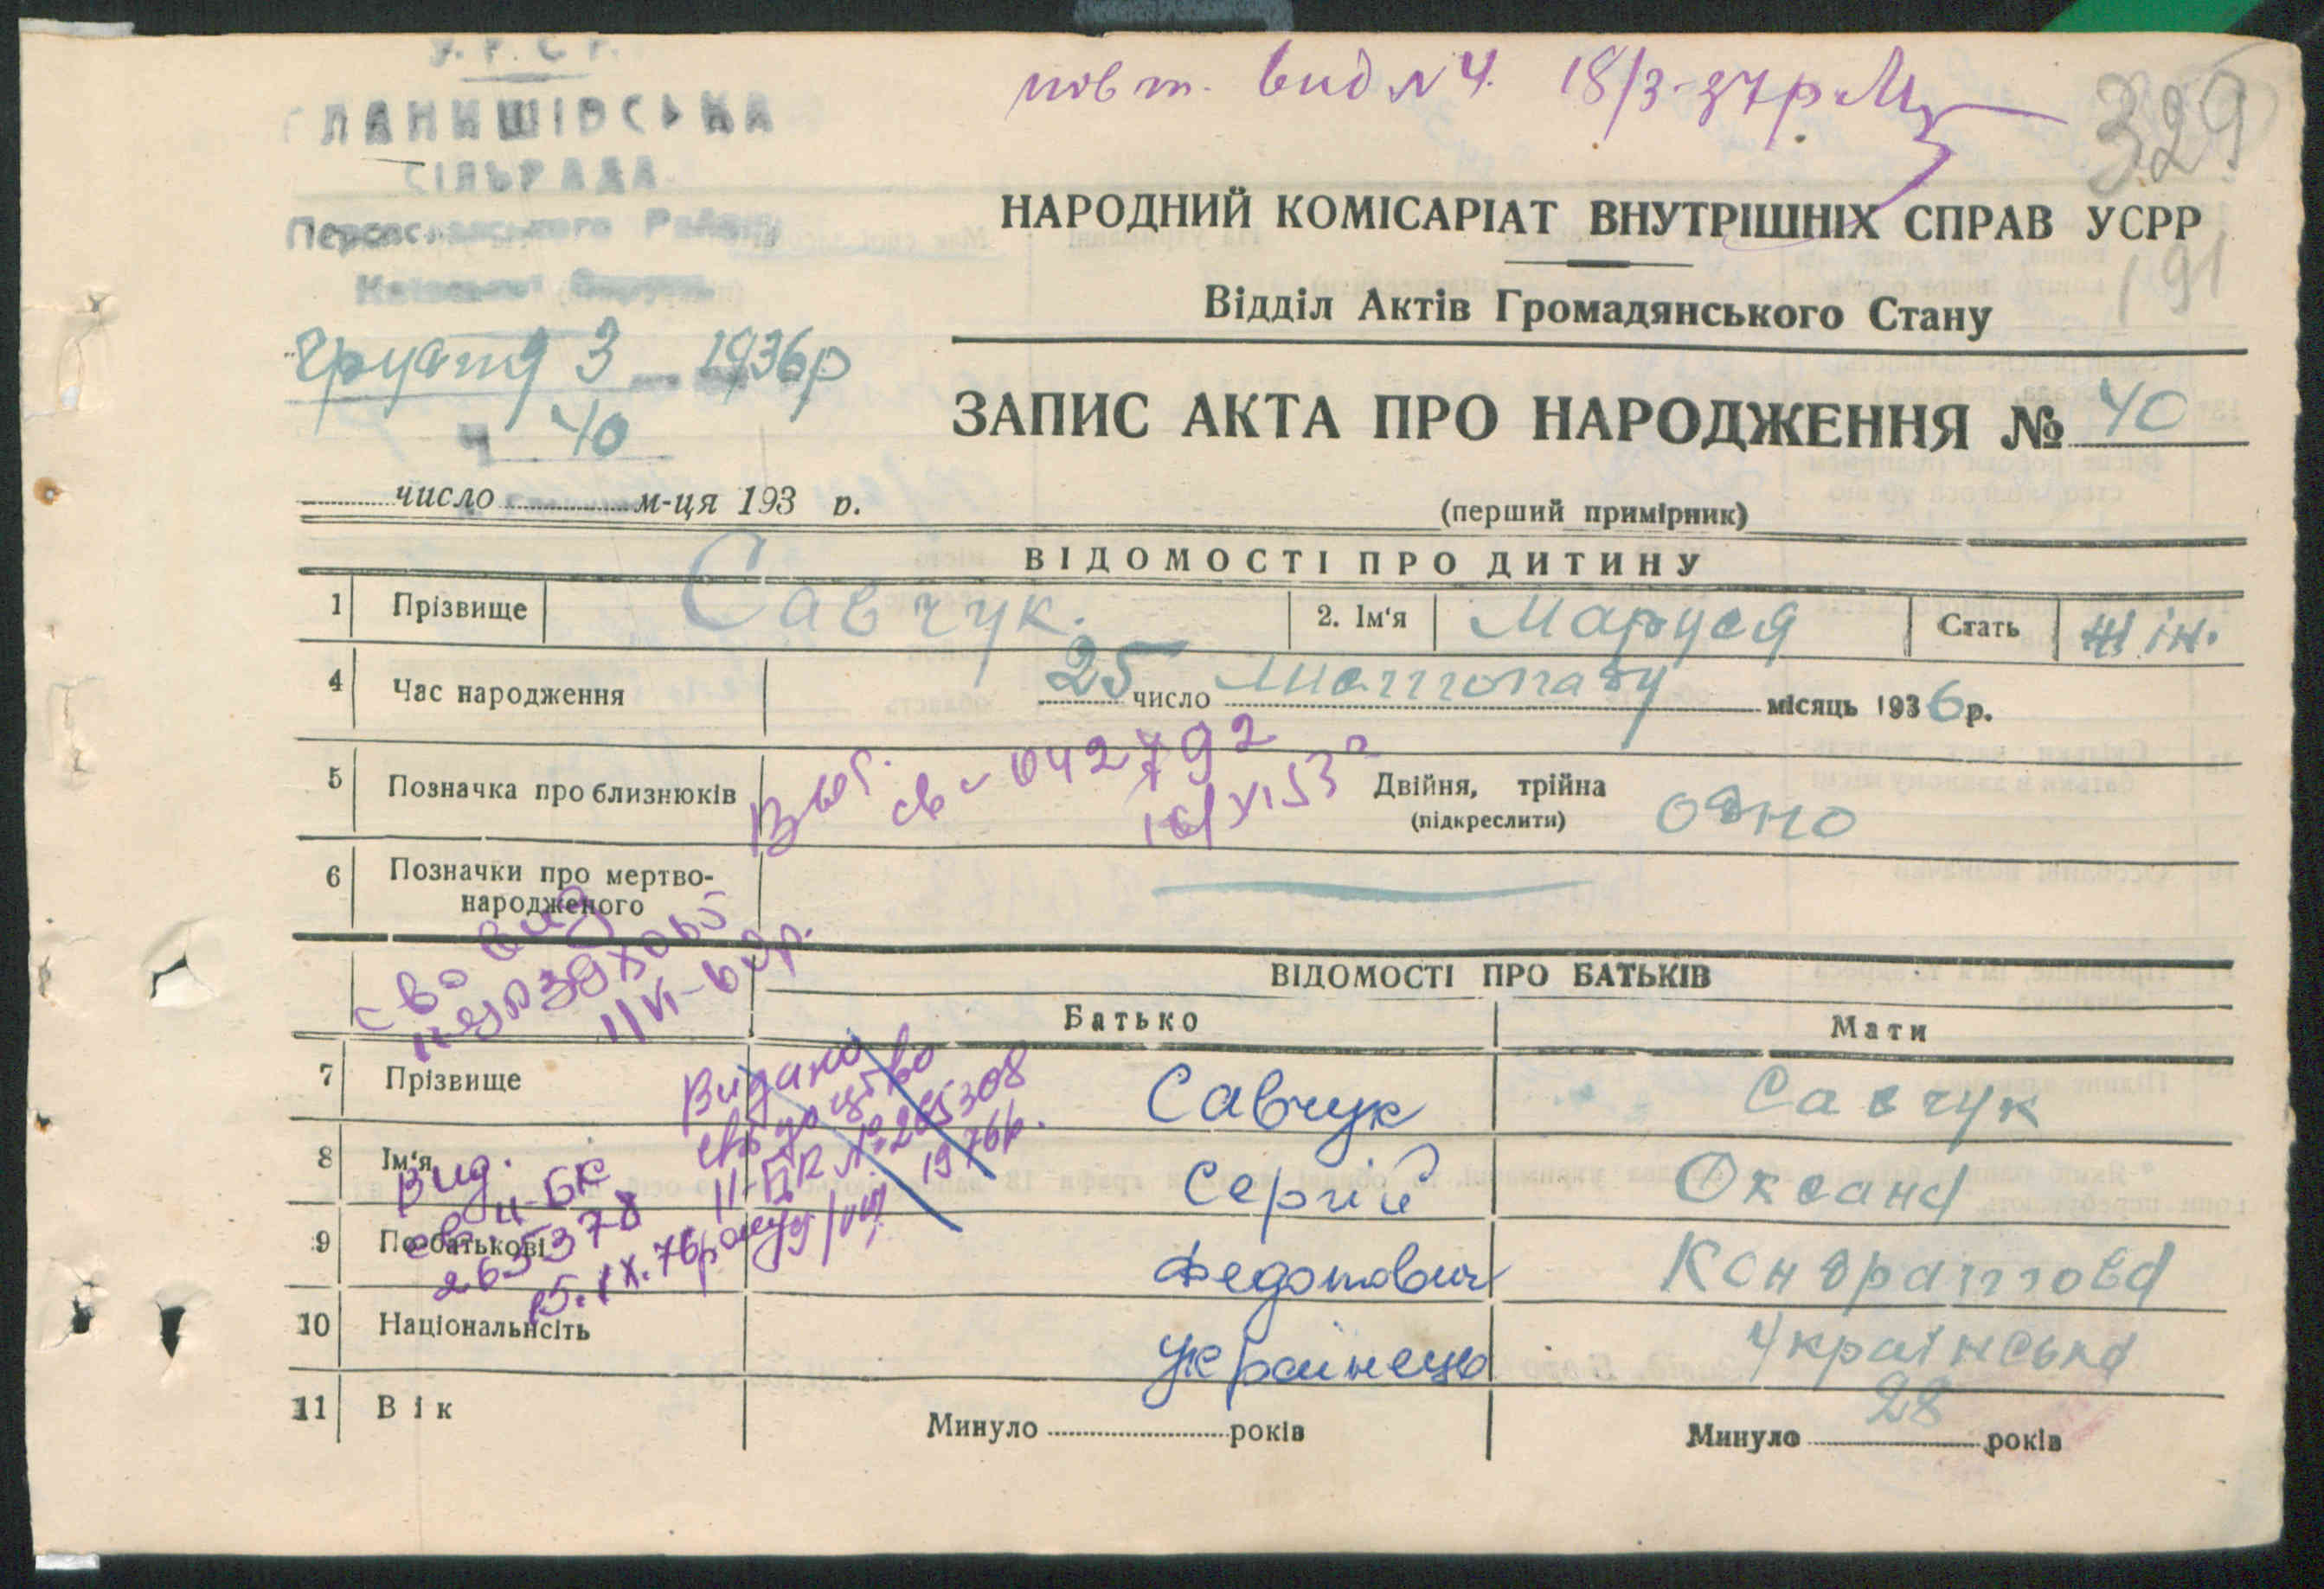 У.Р.С.Р.
ЛАНИШІВСЬКА
СІЛЬРАДА
Переяславського Району
Київської Округи
грудня 3 1936р
Ч 40
число м-ця 193 р.
повт. вид № 4. 18/3-37р
329
191
НАРОДНИЙ КОМІСАРІАТ ВНУТРІШНІХ СПРАВ УСРР
Відділ Актів Громадянського Стану
ЗАПИС АКТА ПРО НАРОДЖЕННЯ № 40
(перший примірник)
ВІДОМОСТІ ПРО ДИТИНУ
1 Прізвище Савчук. 2. Ім'я Маруся Стать жін.
4 Час народження 25 число листопаду місяць 1936 р.
5 Позначка про близнюків Двійня, трійна (підкреслити) одно
Выд. св-042792
16/XI 53 г
6 Позначки про мертвонародженого
св во вид
11/VI-69р.
ВІДОМОСТІ ПРО БАТЬКІВ
Батько Мати
7 Прізвище Савчук Савчук
Видано
свідоцтво
II-БК №265308
1976р.
8 Ім'я Сергій Оксана
Вид.
св. II-БК
265378
15.IX.76р
9 По-батькові Федотович Кондратова
10 Національнсіть Українець Українська
11 Вік Минуло років Минуло 28 років